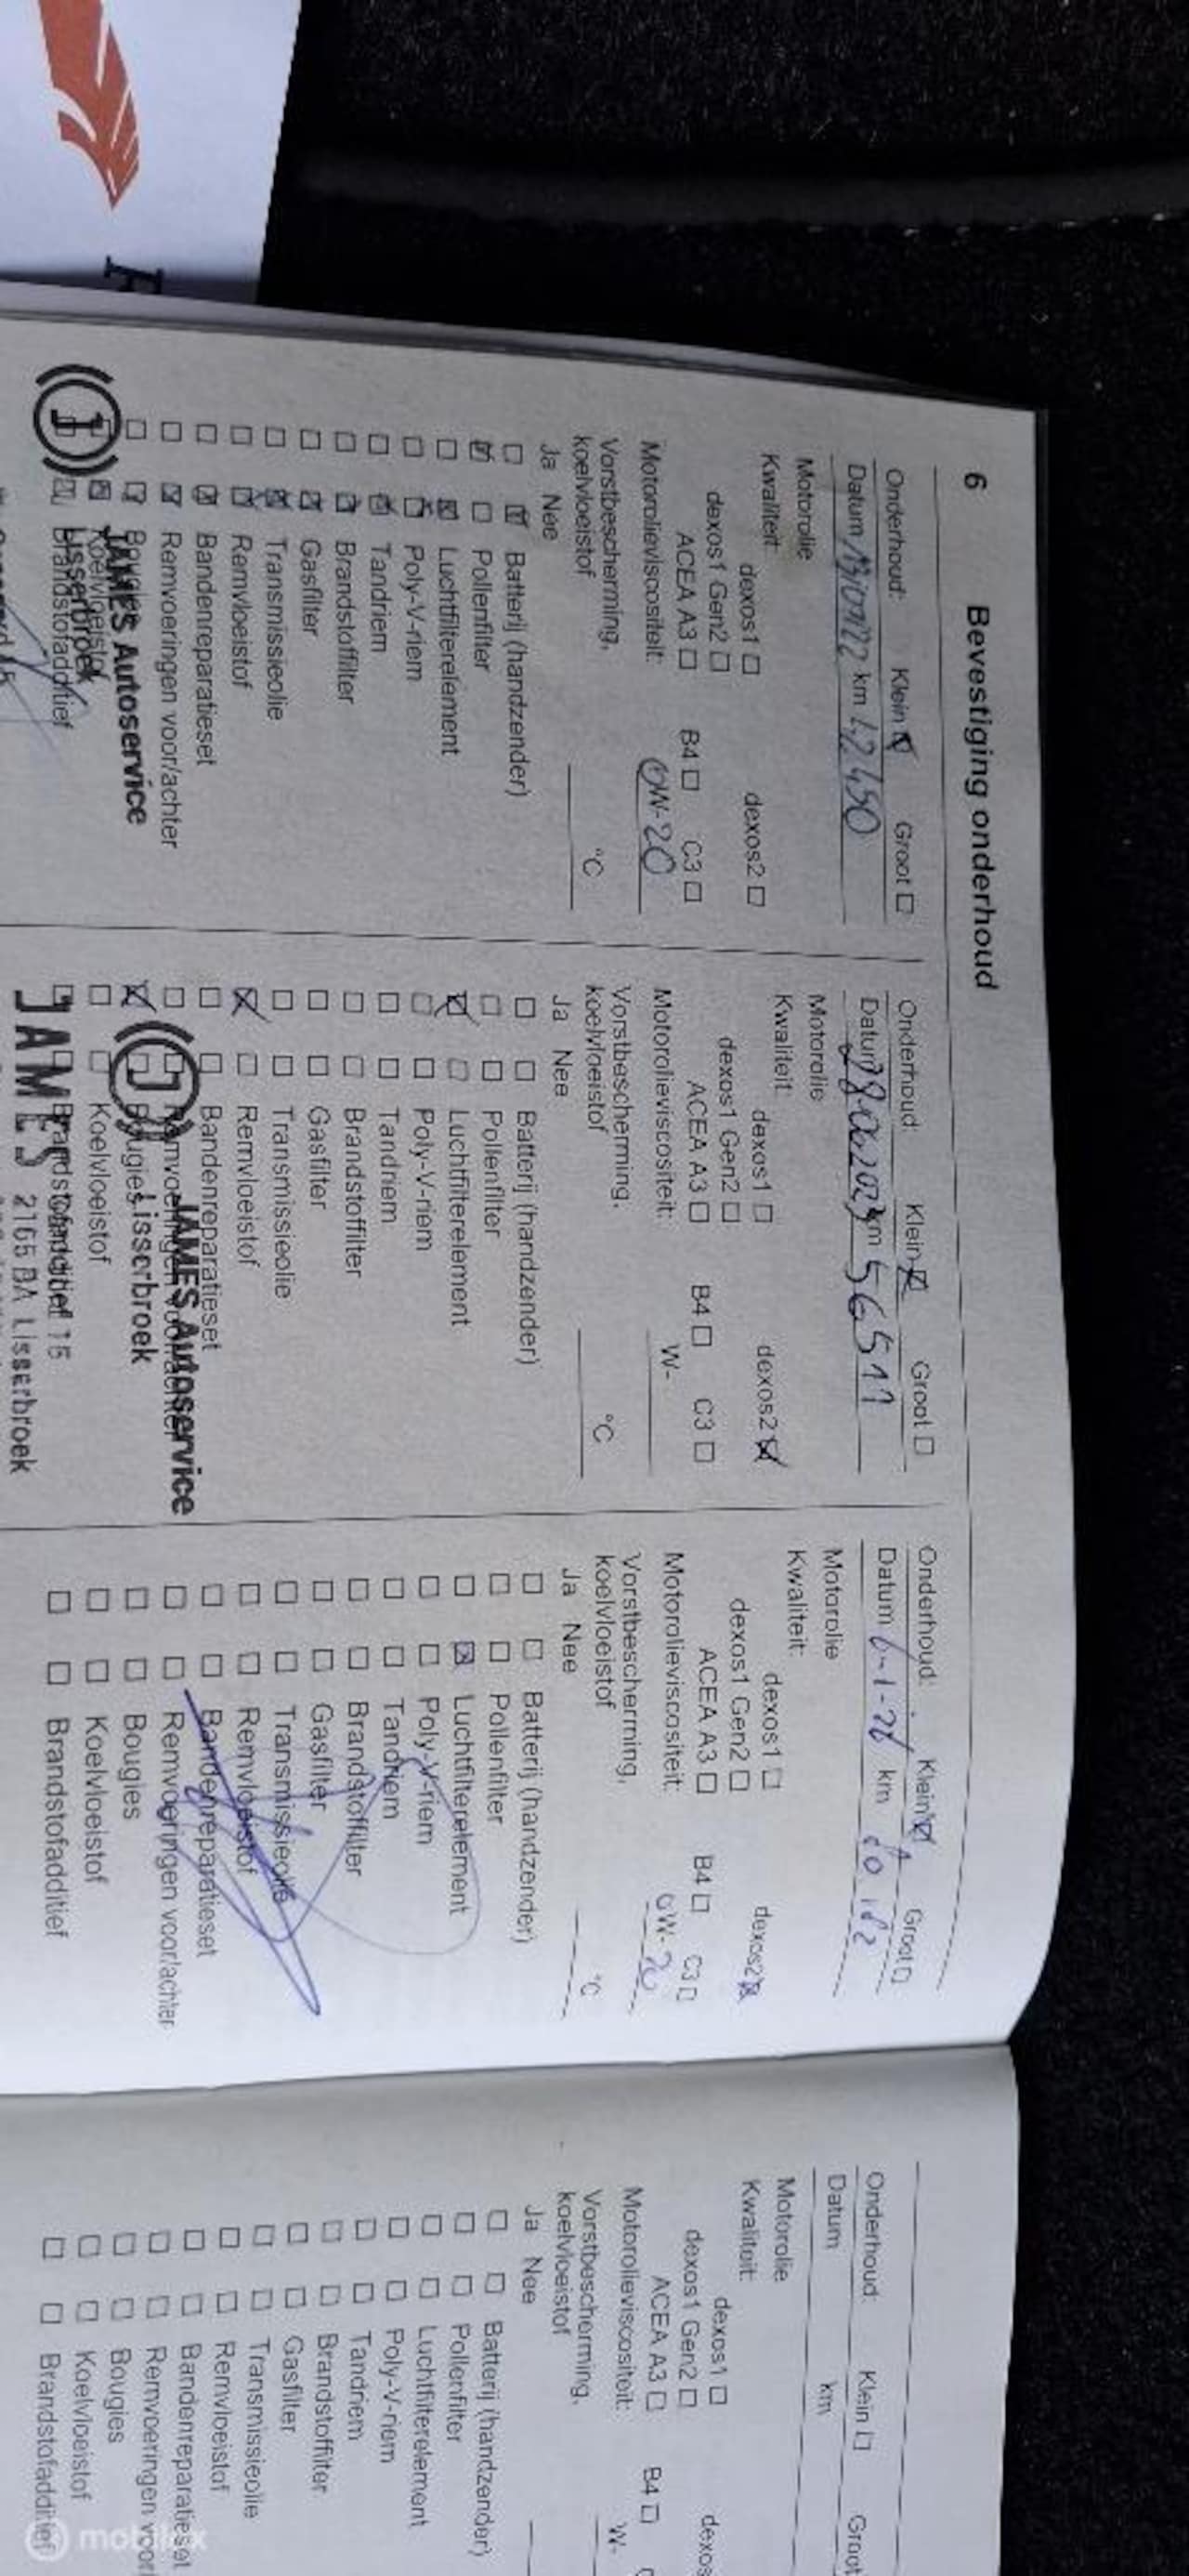 6 Bevestiging onderhoud
Onderhoud: Klein ☒ Groot ☐
Datum km 42450
Motorolie
Kwaliteit:
dexos1 ☐ dexos2 ☐
dexos1 Gen2 ☐
ACEA A3 ☐ B4 ☐ C3 ☐
Motorolieviscositeit: 0W-20
Vorstbescherming,
koelvloeistof °C
Ja Nee
☐ ☒ Batterij (handzender)
☒ ☐ Pollenfilter
☐ ☒ Luchtfilterelement
☐ ☒ Poly-V-riem
☐ ☒ Tandriem
☐ ☒ Brandstoffilter
☐ ☒ Gasfilter
☐ ☒ Transmissieolie
☐ ☒ Remvloeistof
☐ ☒ Bandenreparatieset
☐ ☒ Remvoeringen voor/achter
☐ ☒ Bougies
☐ ☒ Koelvloeistof
☐ ☒ Brandstofadditief
JAMES Autoservice
Lisserbroek
Onderhoud: Klein ☒ Groot ☐
Datum km 56511
Motorolie
Kwaliteit:
dexos1 ☐ dexos2 ☒
dexos1 Gen2 ☐
ACEA A3 ☐ B4 ☐ C3 ☐
Motorolieviscositeit: W-
Vorstbescherming,
koelvloeistof °C
Ja Nee
☐ ☐ Batterij (handzender)
☐ ☐ Pollenfilter
☒ ☐ Luchtfilterelement
☐ ☐ Poly-V-riem
☐ ☐ Tandriem
☐ ☐ Brandstoffilter
☐ ☐ Gasfilter
☐ ☐ Transmissieolie
☒ ☐ Remvloeistof
☐ ☐ Bandenreparatieset
☐ ☐ Remvoeringen voor/achter
☒ ☐ Bougies
☐ ☐ Koelvloeistof
☐ ☐ Brandstofadditief
JAMES Autoservice
Lisserbroek
15
JAMES 2165 BA Lisserbroek
Onderhoud: Klein ☒ Groot ☐
Datum km
Motorolie
Kwaliteit:
dexos1 ☐ dexos2 ☒
dexos1 Gen2 ☐
ACEA A3 ☐ B4 ☐ C3 ☐
Motorolieviscositeit: 0W-20
Vorstbescherming,
koelvloeistof °C
Ja Nee
☐ ☐ Batterij (handzender)
☐ ☐ Pollenfilter
☐ ☒ Luchtfilterelement
☐ ☐ Poly-V-riem
☐ ☐ Tandriem
☐ ☐ Brandstoffilter
☐ ☐ Gasfilter
☐ ☐ Transmissieolie
☐ ☐ Remvloeistof
☐ ☐ Bandenreparatieset
☐ ☐ Remvoeringen voor/achter
☐ ☐ Bougies
☐ ☐ Koelvloeistof
☐ ☐ Brandstofadditief
Onderhoud: Klein ☐ Groot
Datum km
Motorolie
Kwaliteit:
dexos1 ☐ dexos
dexos1 Gen2 ☐
ACEA A3 ☐ B4 ☐
Motorolieviscositeit: W-
Vorstbescherming,
koelvloeistof
Ja Nee
☐ ☐ Batterij (handzender)
☐ ☐ Pollenfilter
☐ ☐ Luchtfilterelement
☐ ☐ Poly-V-riem
☐ ☐ Tandriem
☐ ☐ Brandstoffilter
☐ ☐ Gasfilter
☐ ☐ Transmissieolie
☐ ☐ Remvloeistof
☐ ☐ Bandenreparatieset
☐ ☐ Remvoeringen voor/
☐ ☐ Bougies
☐ ☐ Koelvloeistof
☐ ☐ Brandstofadditief